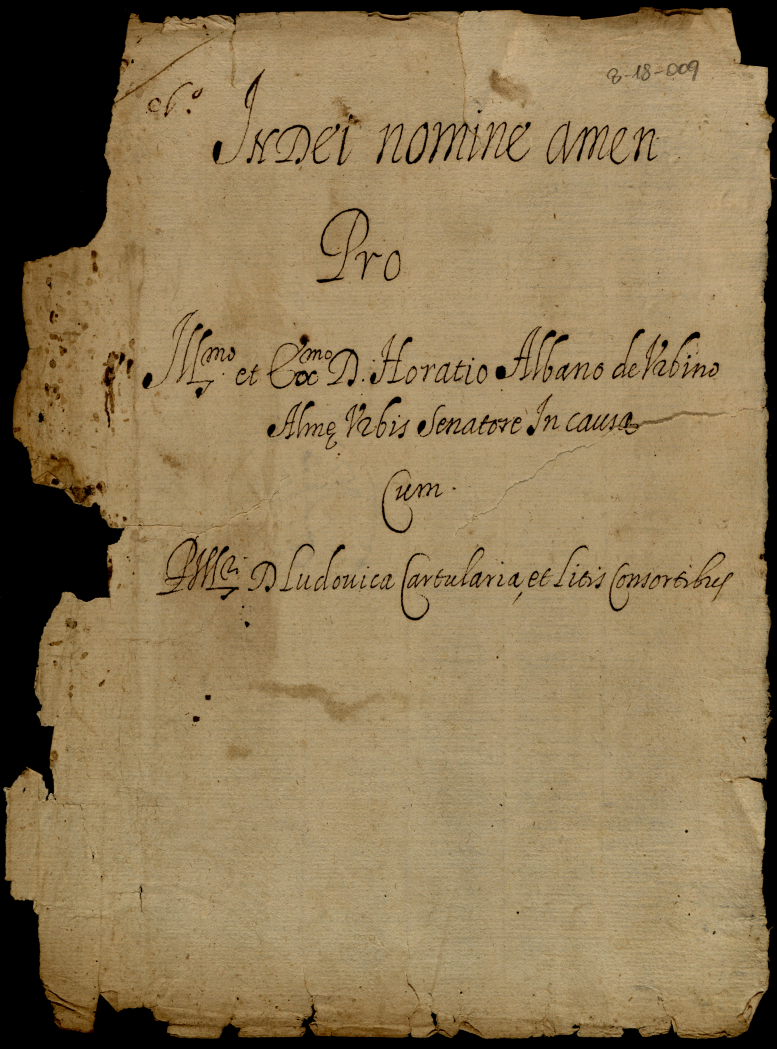 8-18-009
In Dei nomine amen
Pro
Ill.mo et Exc.mo D. Horatio Albano de Vrbino
Almę Vrbis Senatore In causa
Cum.
D Ludouica Cartularia, et Litis Consortibus